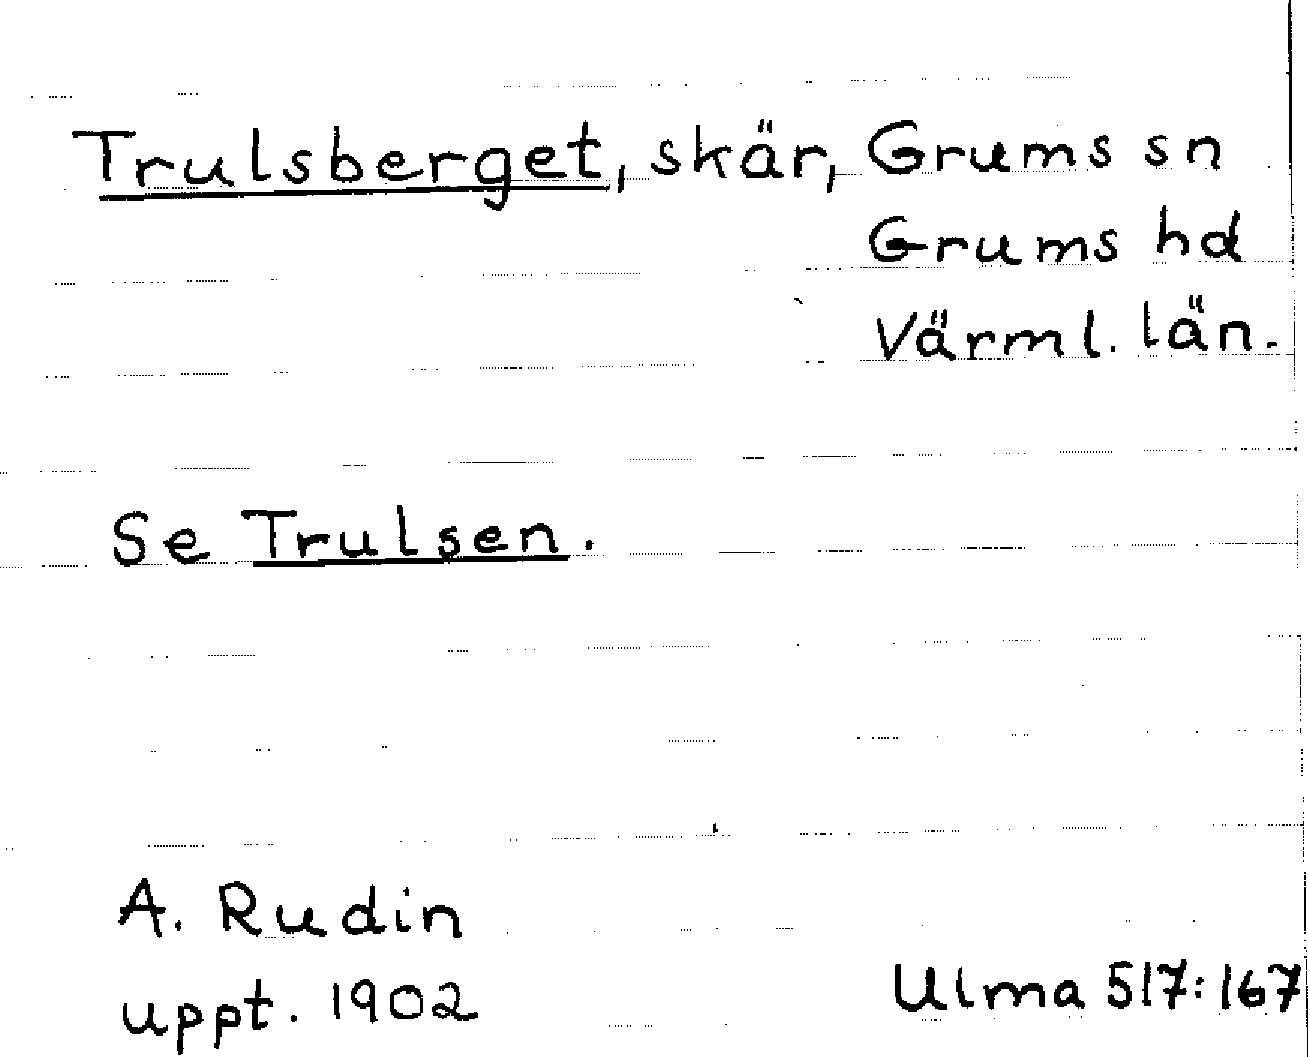 Trulsberget, skär, Grums sn
Grums hd
Värml. län.
Se Trulsen.
A. Rudin
uppt. 1902
Ulma 517:167